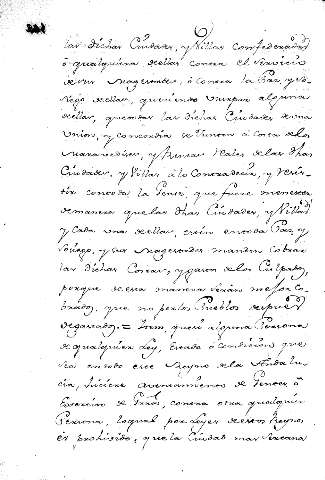 las dichas Ciudades, y Villas confederadas
ó qualquiera de ellas contra el servicio
de sus Magestades, ó contra la Paz, y So-
siego de ellas, queriendo usurpar alguna
de ellas, que todas las dichas Ciudades de una
Union, y concordia se junten á costa de los
Maravedises, y Rentas Reales de las dhas
Ciudades, y Villas á lo contradecir, y resis-
tir con toda la Gente, que fuere menester
de manera que las dhas Ciudades, y Villas
y Cada una de ellas, estén en toda Paz, y
Sosiego, y sus Magestades manden cobrar
las dichas Costas, y gastos de los Culpados,
porque de esta manera serán mejor co-
brados, que no por los Pueblos despues
de gastados. = Item, que si alguna Persona
de qualquier Ley, Estado ó Condicion que
sea en todo este Reyno de la Andalu-
cia, hiciere ayuntamiento de Gentes, ó
Exercito de contra otra qualquier
Persona, lo qual por Leyes de estos Reynos
es prohivido, que la Ciudad mas cercana